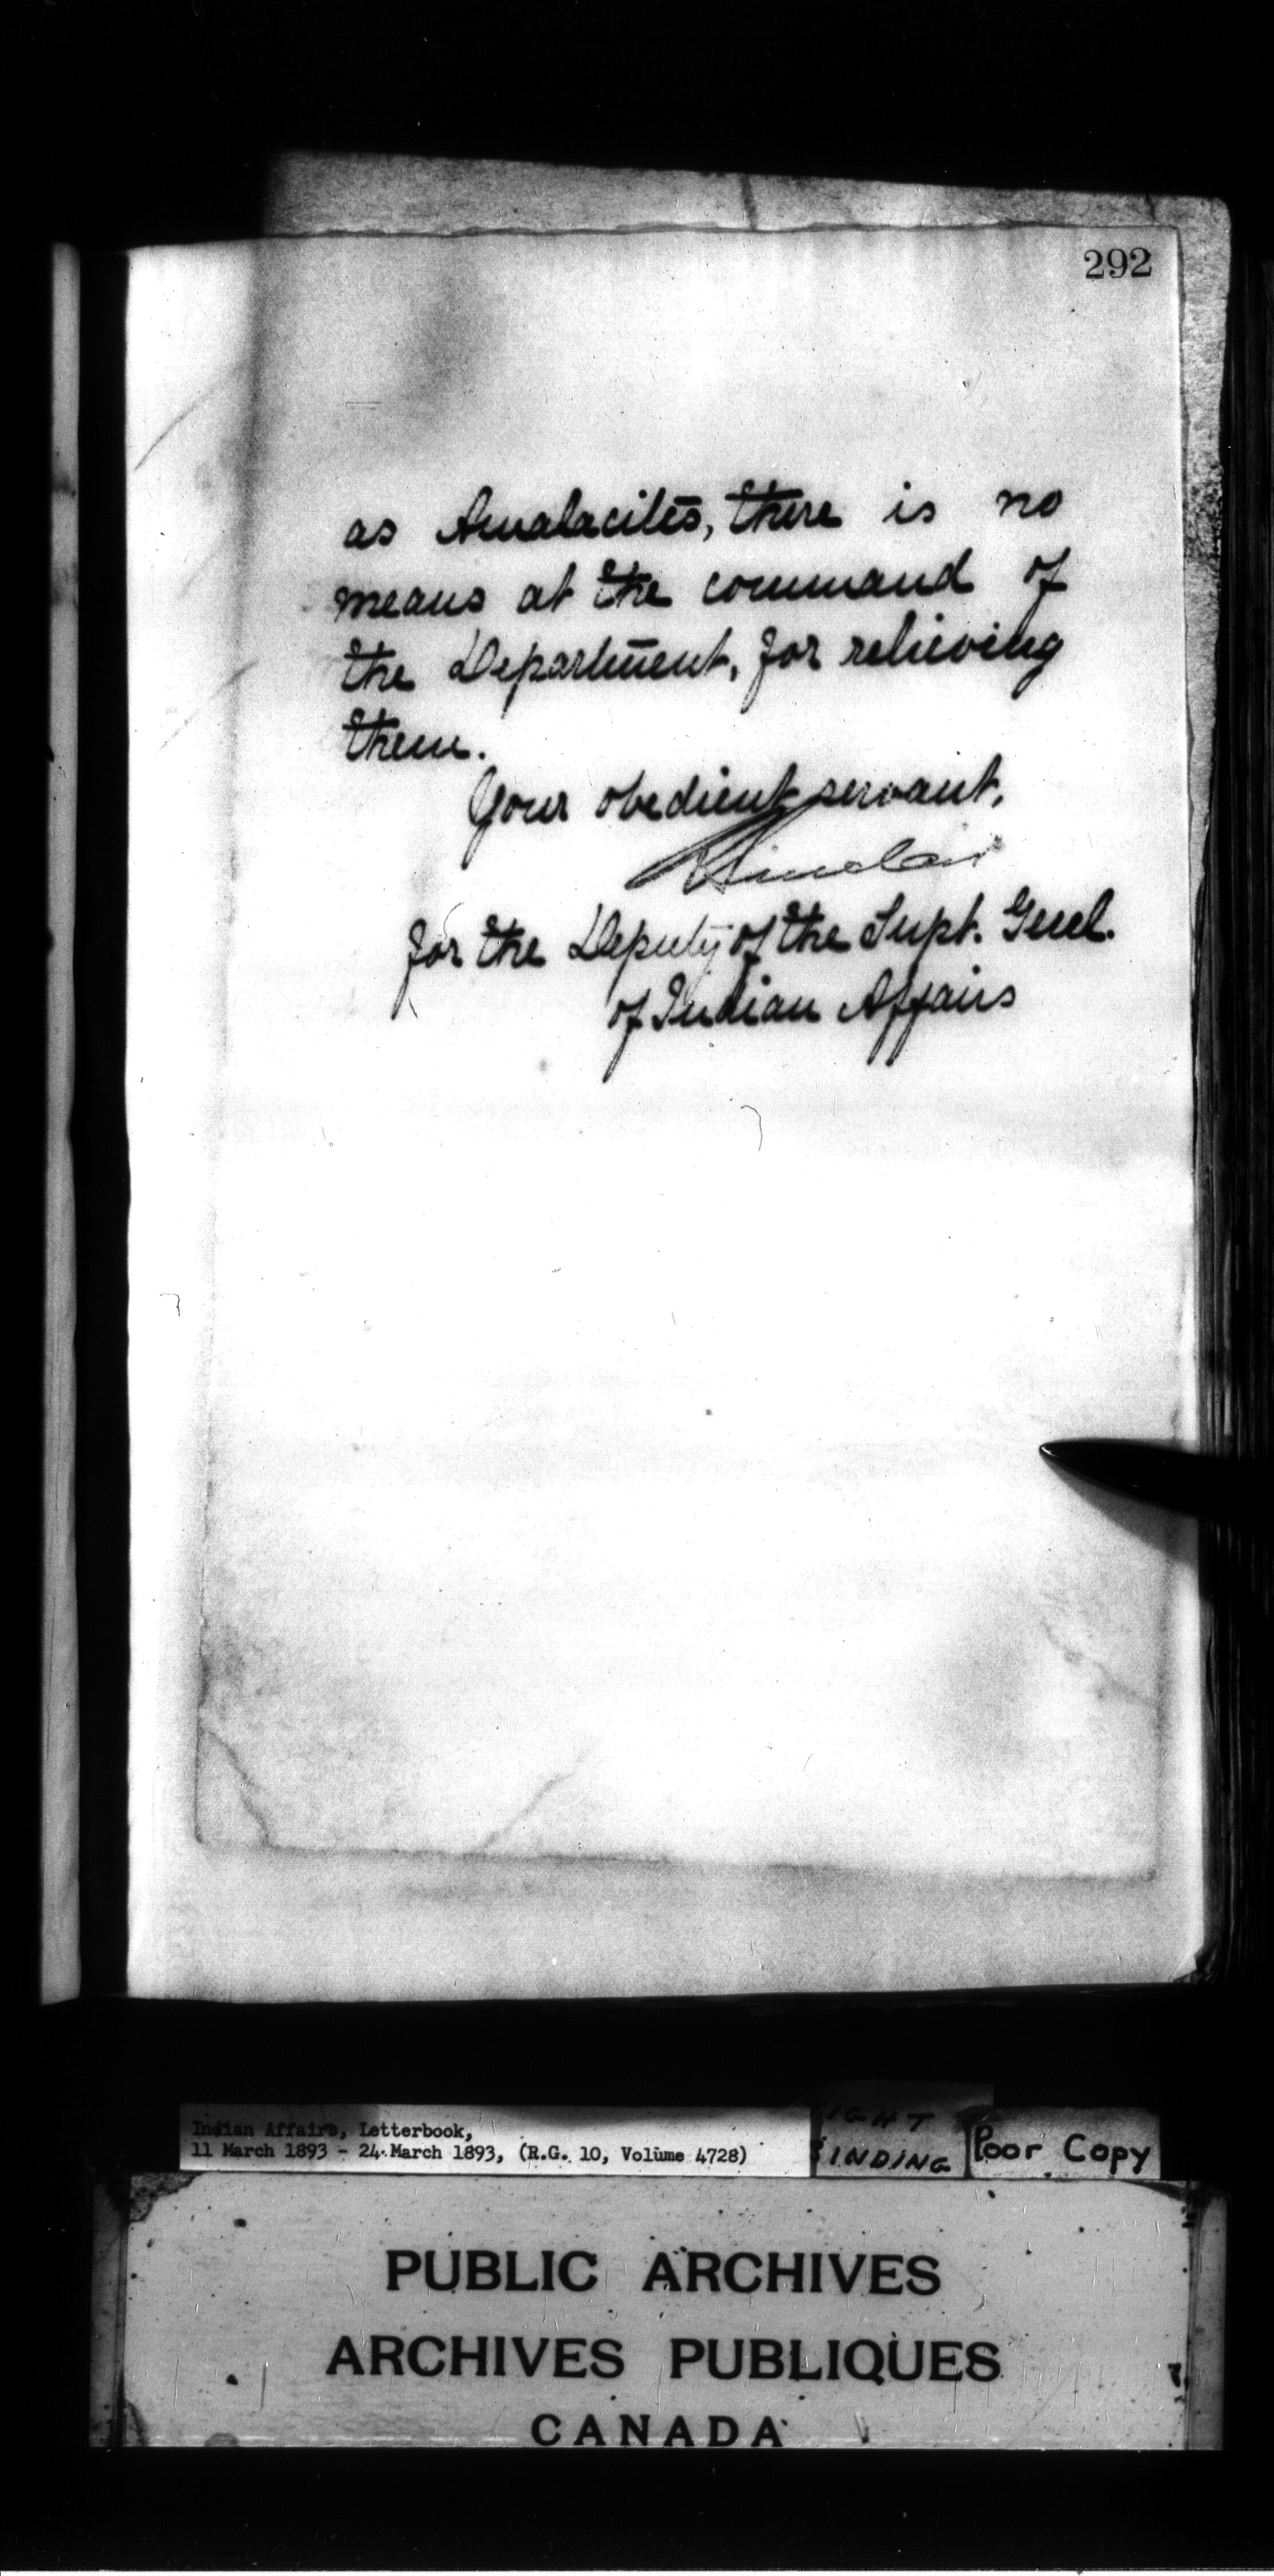 292
as Amalacites, there is no
means at the command of
the Department, for relieving
them.
Your obedient servant,
Sinclair
for the Deputy of the Supt. Genl.
of Indian Affairs
Indian Affairs, Letterbook,
11 March 1893 - 24 March 1893, (R.G. 10, Volume 4728)
IGHT
INDING
Poor Copy
PUBLIC ARCHIVES
ARCHIVES PUBLIQUES
CANADA